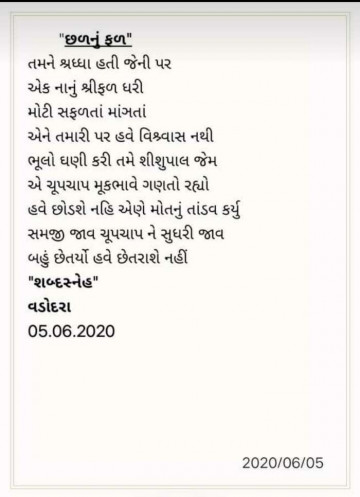 "છળનું ફળ"
તમને શ્રધ્ધા હતી જેની પર
એક નાનું શ્રીફળ ધરી
મોટી સફળતાં માંગતાં
એને તમારી પર હવે વિશ્ર્વાસ નથી
ભૂલો ઘણી કરી તમે શીશુપાલ જેમ
એ ચૂપચાપ મૂકભાવે ગણતો રહ્યો
હવે છોડશે નહિ એણે મોતનું તાંડવ કર્યુ
સમજી જાવ ચૂપચાપ ને સુધરી જાવ
બહું છેતર્યો હવે છેતરાશે નહીં
"શબ્દસ્નેહ"
વડોદરા
05.06.2020
2020/06/05